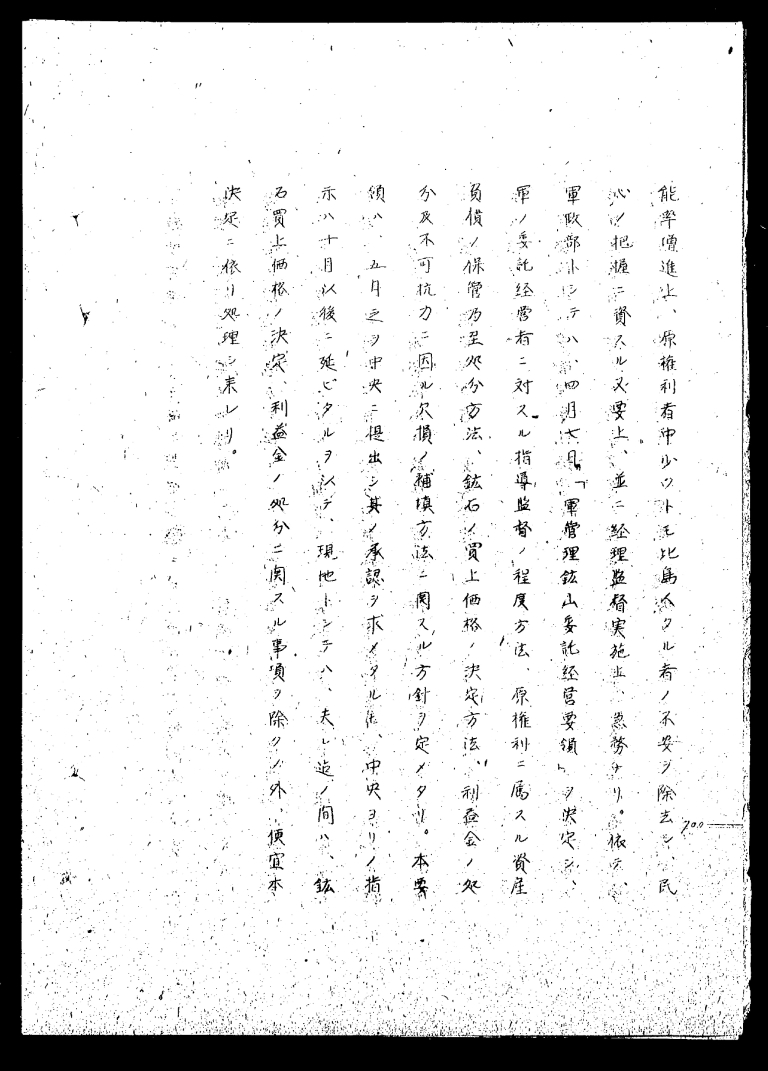 能率増進上、原権利者中少クトモ比島人タル者ノ不安ヲ除去シ、民
心ノ把握ニ資スル必要上、並ニ経理監督実施上、急務ナリ。依テ、
軍政部トシテハ、四月七日「軍管理鉱山委託経営要領」ヲ決定シ、
軍ノ委託経営者ニ対スル指導監督ノ程度方法 原権利ニ属スル資産
負債ノ保管乃至処分方法、鉱石ノ買上価格ノ決定方法、利益金ノ処
分及不可抗力ニ因ル欠損ノ補填方法ニ関スル方針ヲ定メタリ。本要
領ハ、五月之ヲ中央ニ提出シ其ノ承認ヲ求メタル処、中央ヨリノ指
示ハ十月以後ニ延ビタルヲ以テ、現地トシテハ、夫レ迄ノ間ハ、鉱
石買上価格ノ決定、利益金ノ処分ニ関スル事項ヲ除クノ外、便宜本
決定ニ依リ処理シ来レリ。
700